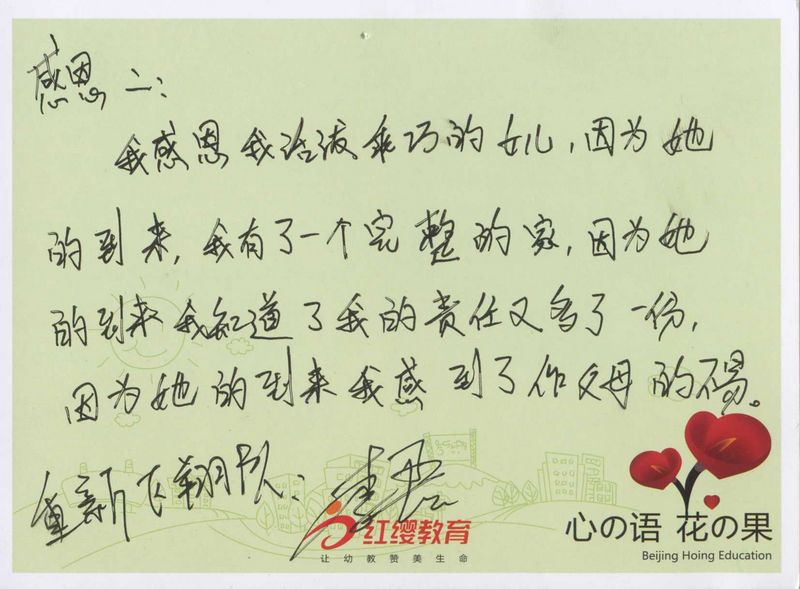 感恩二：
我感恩我活泼乖巧的女儿，因为她
的到来，我有了一个完整的家，因为她
的到来我知道了我的责任又多了一份，
因为她的到来我感到了作父母的不易。
重新飞翔队：
红缨教育
让幼教赞美生命
心の语 花の果
Beijing Hoing Education